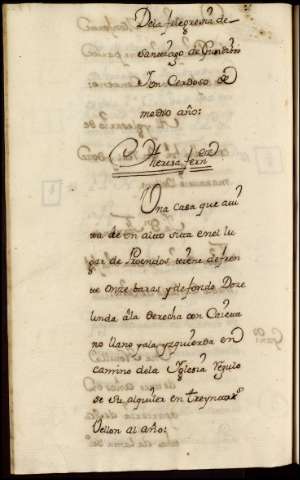 De la feligresia de
Santiago de
Un Cerdoso de
medio año:
Theresa fern^dz
Una casa que avi
ta de un alto sita en el lu
gar de tiene de fren
te onze baras y de fondo Doze
linda a la derecha con
no llano y a la yzquierda en
camino de la Iglesia regulo
se su alquiler en treynta r^s
Vellon al año: